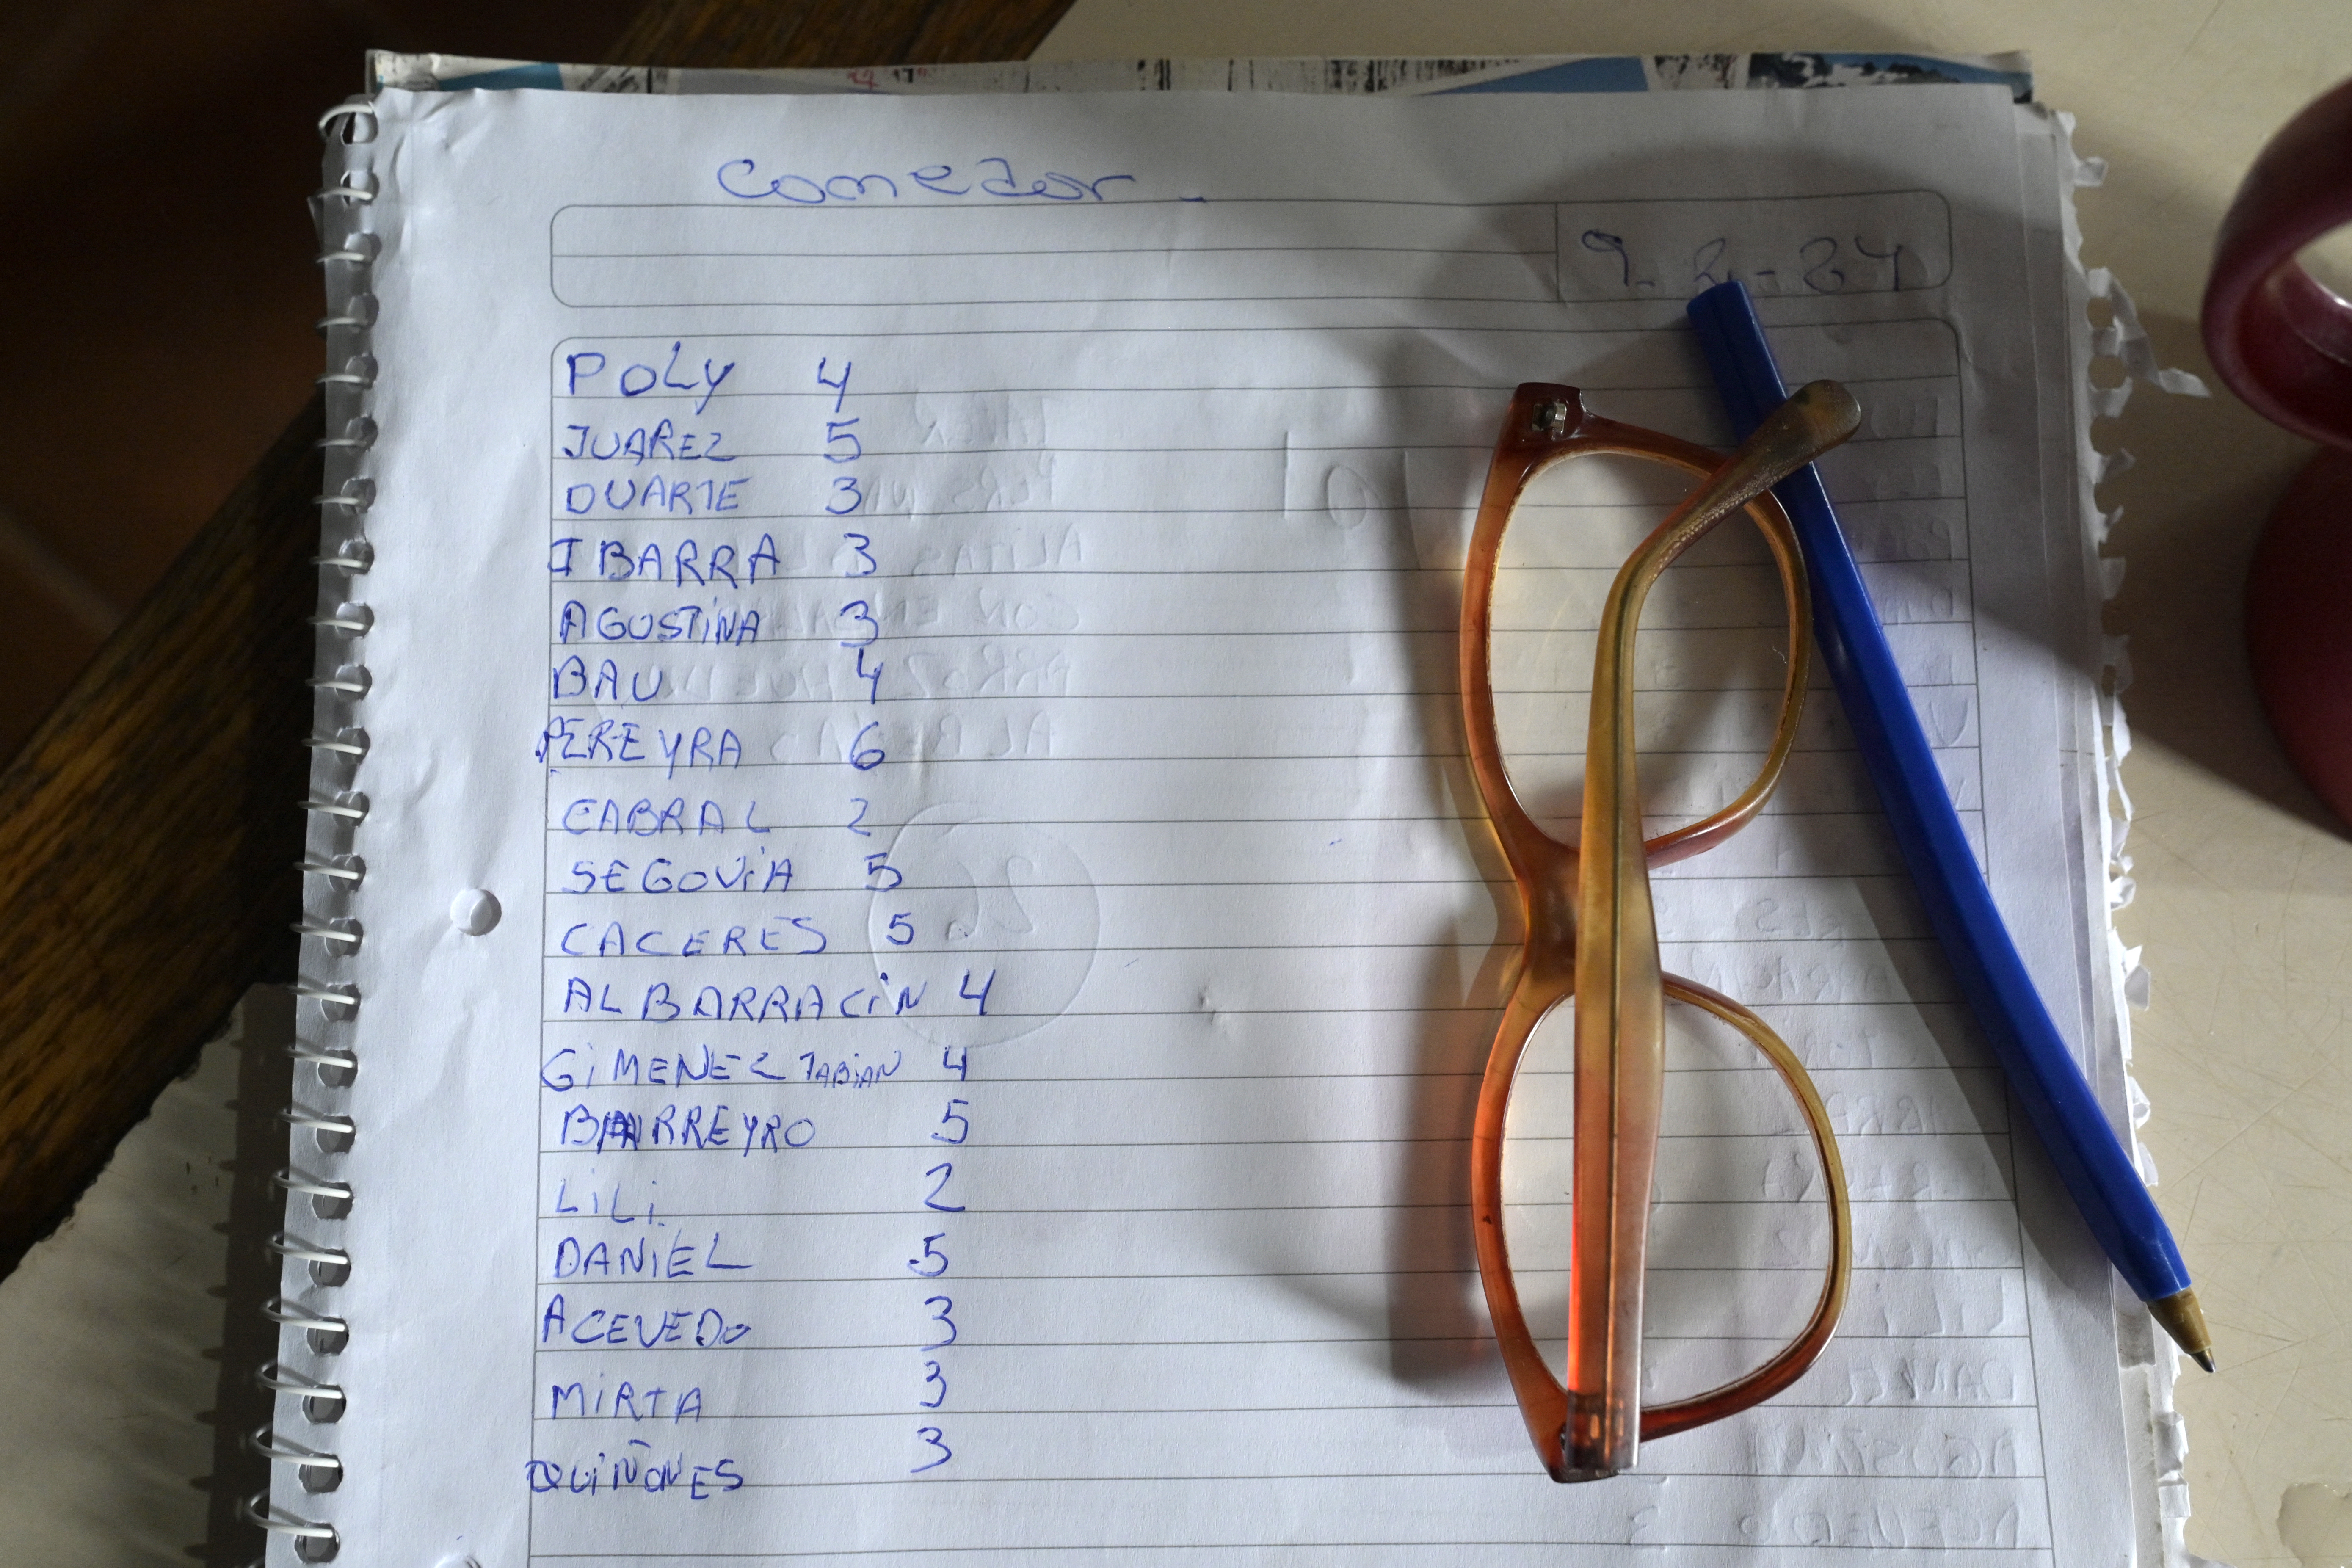 Comedor -
9-2-24
POLY 4
JUAREZ 5
DUARTE 3
IBARRA 3
AGUSTiNA 3
BAU 4
PEREYRA 6
CABRAL 2
SEGOViA 5
CACERES 5
ALBARRACiN 4
GiMENEZ FABiAN 4
BARREYRO 5
LiLi 2
DANiEL 5
ACEVEDO 3
MiRTA 3
QUiÑONES 3